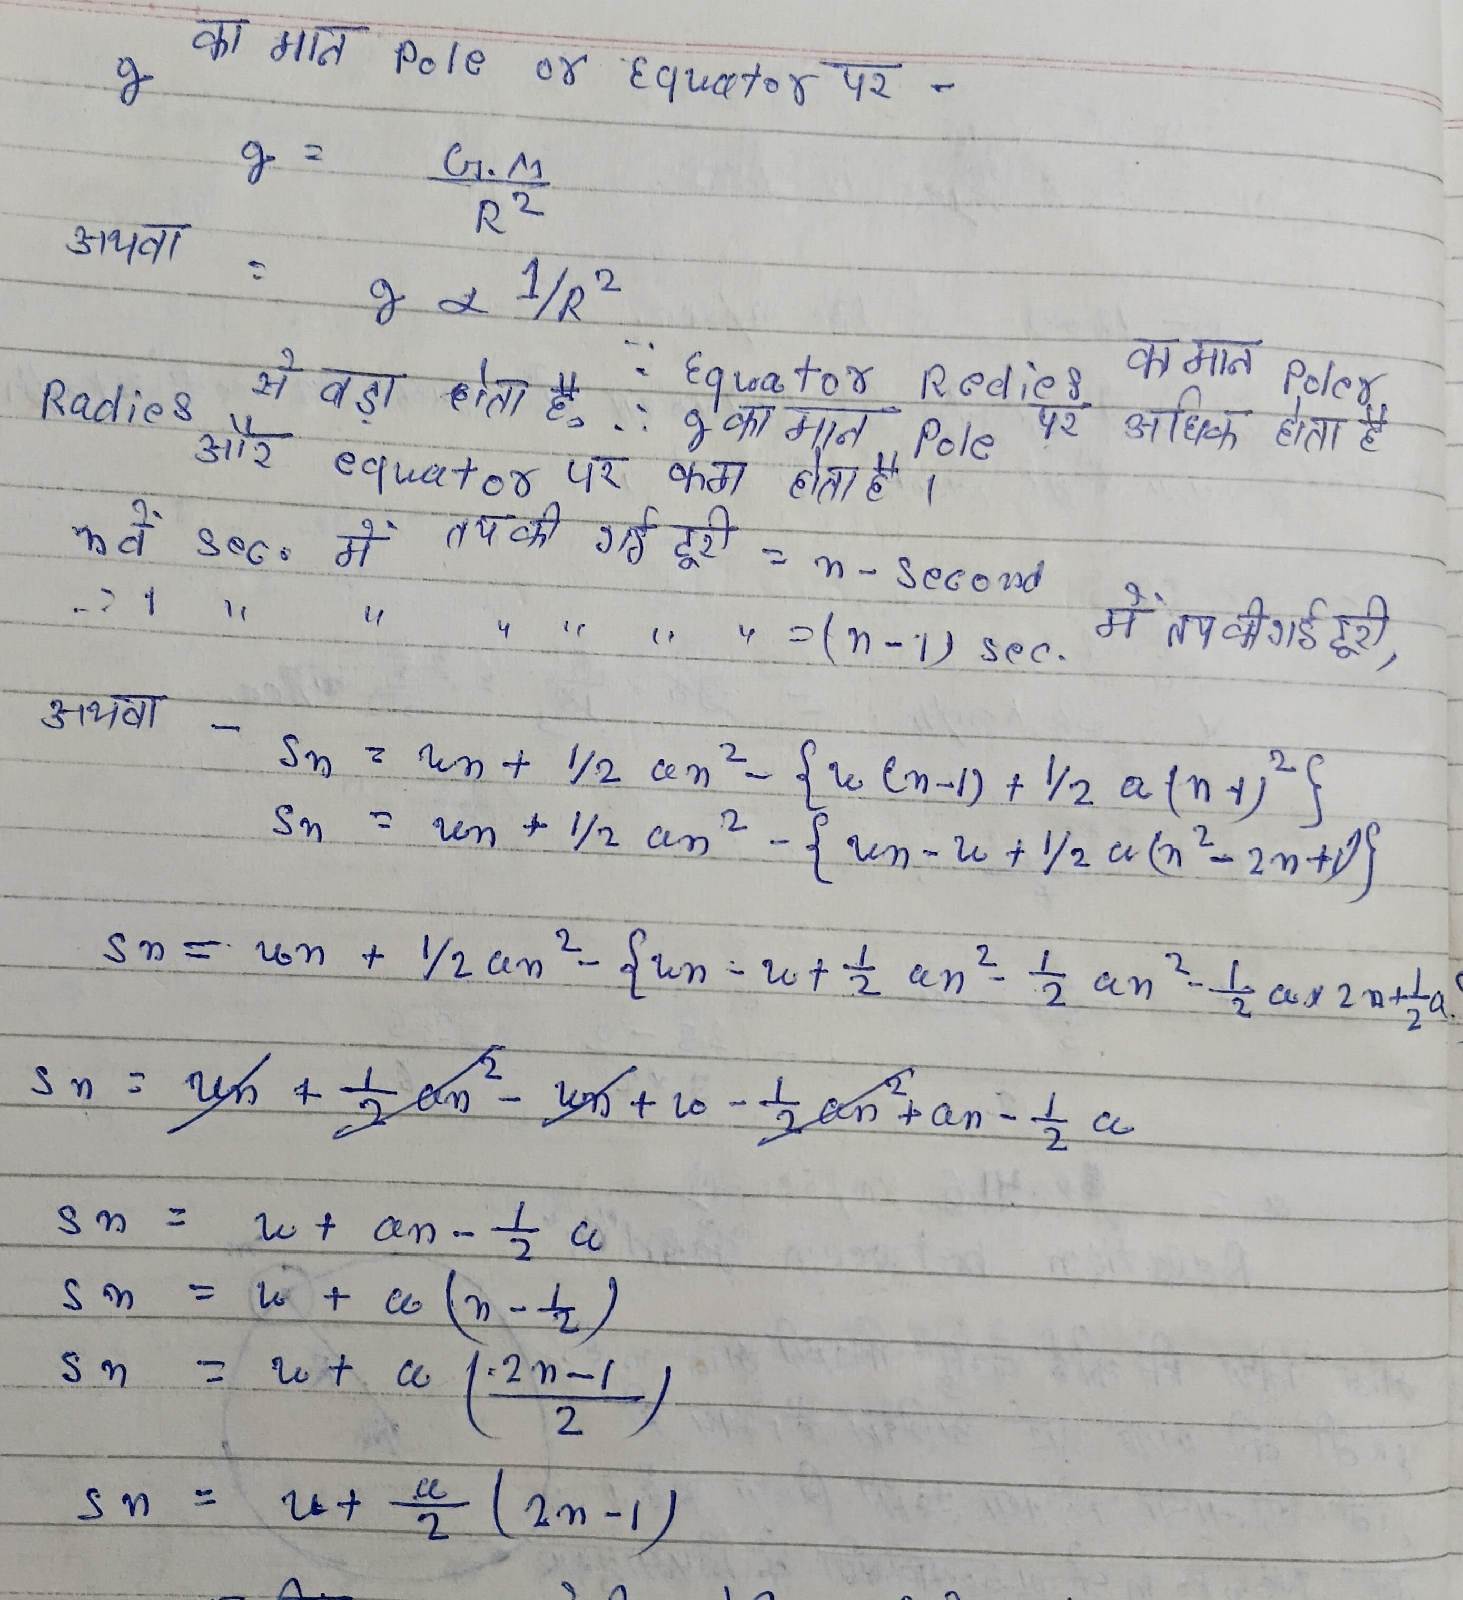 g का मान Pole or Equator पर -
g = G.M / R²
अथवा = g ∝ 1/R²
∵ Equator Redies का मान Poler
Radies से बड़ा होता है, ∴ g का मान Pole पर अधिक होता है
और equator पर कम होता है।
n वें sec. में तय की गई दूरी = n - second
-: 1 " " " " " " = (n-1) sec. में तय की गई दूरी,
अथवा -
Sn = un + 1/2 an² - {u (n-1) + 1/2 a (n-1)²}
Sn = un + 1/2 an² - {un - u + 1/2 a (n² - 2n + 1)}
Sn = un + 1/2 an² - {un - u + 1/2 an² - 1/2 an² - 1/2 a x 2n + 1/2 a.}
Sn = un + 1/2 an² - un + u - 1/2 an² + an - 1/2 a
Sn = u + an - 1/2 a
Sn = u + a (n - 1/2)
Sn = u + a (2n-1 / 2)
Sn = u + a/2 (2n-1)